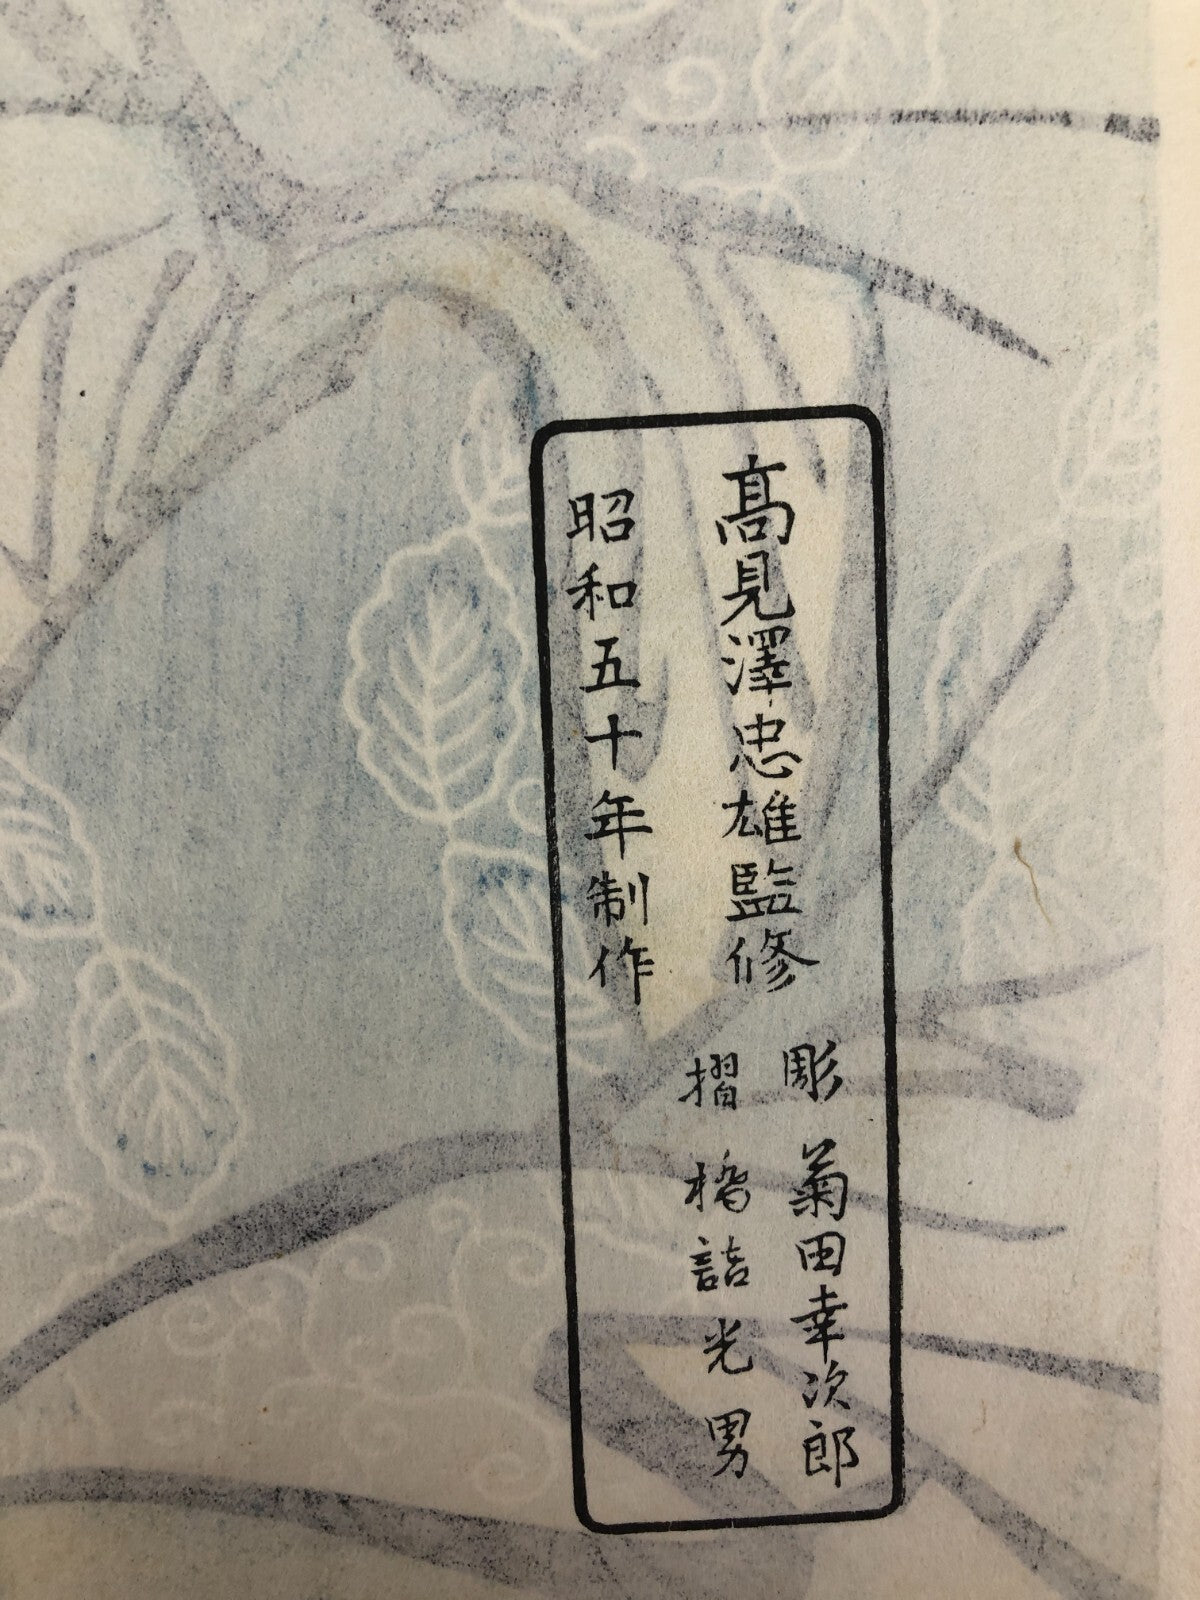 高見澤忠雄監修
彫 菊田幸次郎
摺 橋詰光男
昭和五十年制作